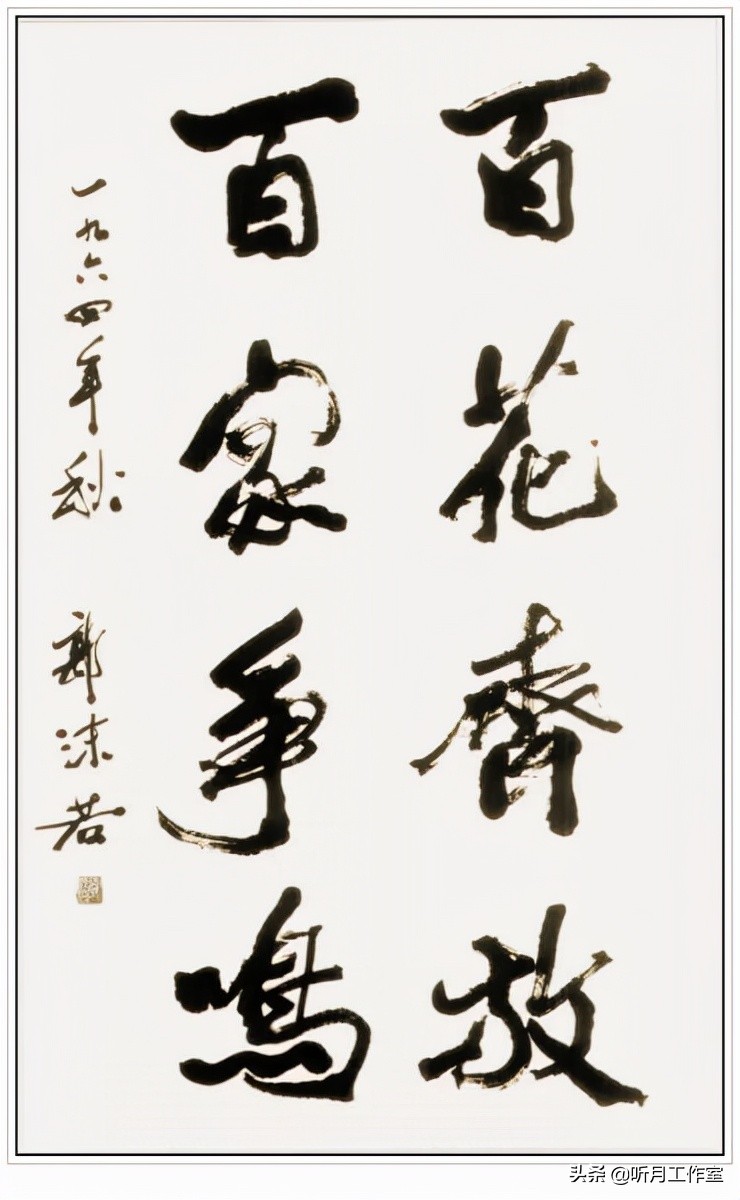 百花齊放
百家爭鳴
一九六四年秋 郭沫若
头条 @听月工作室